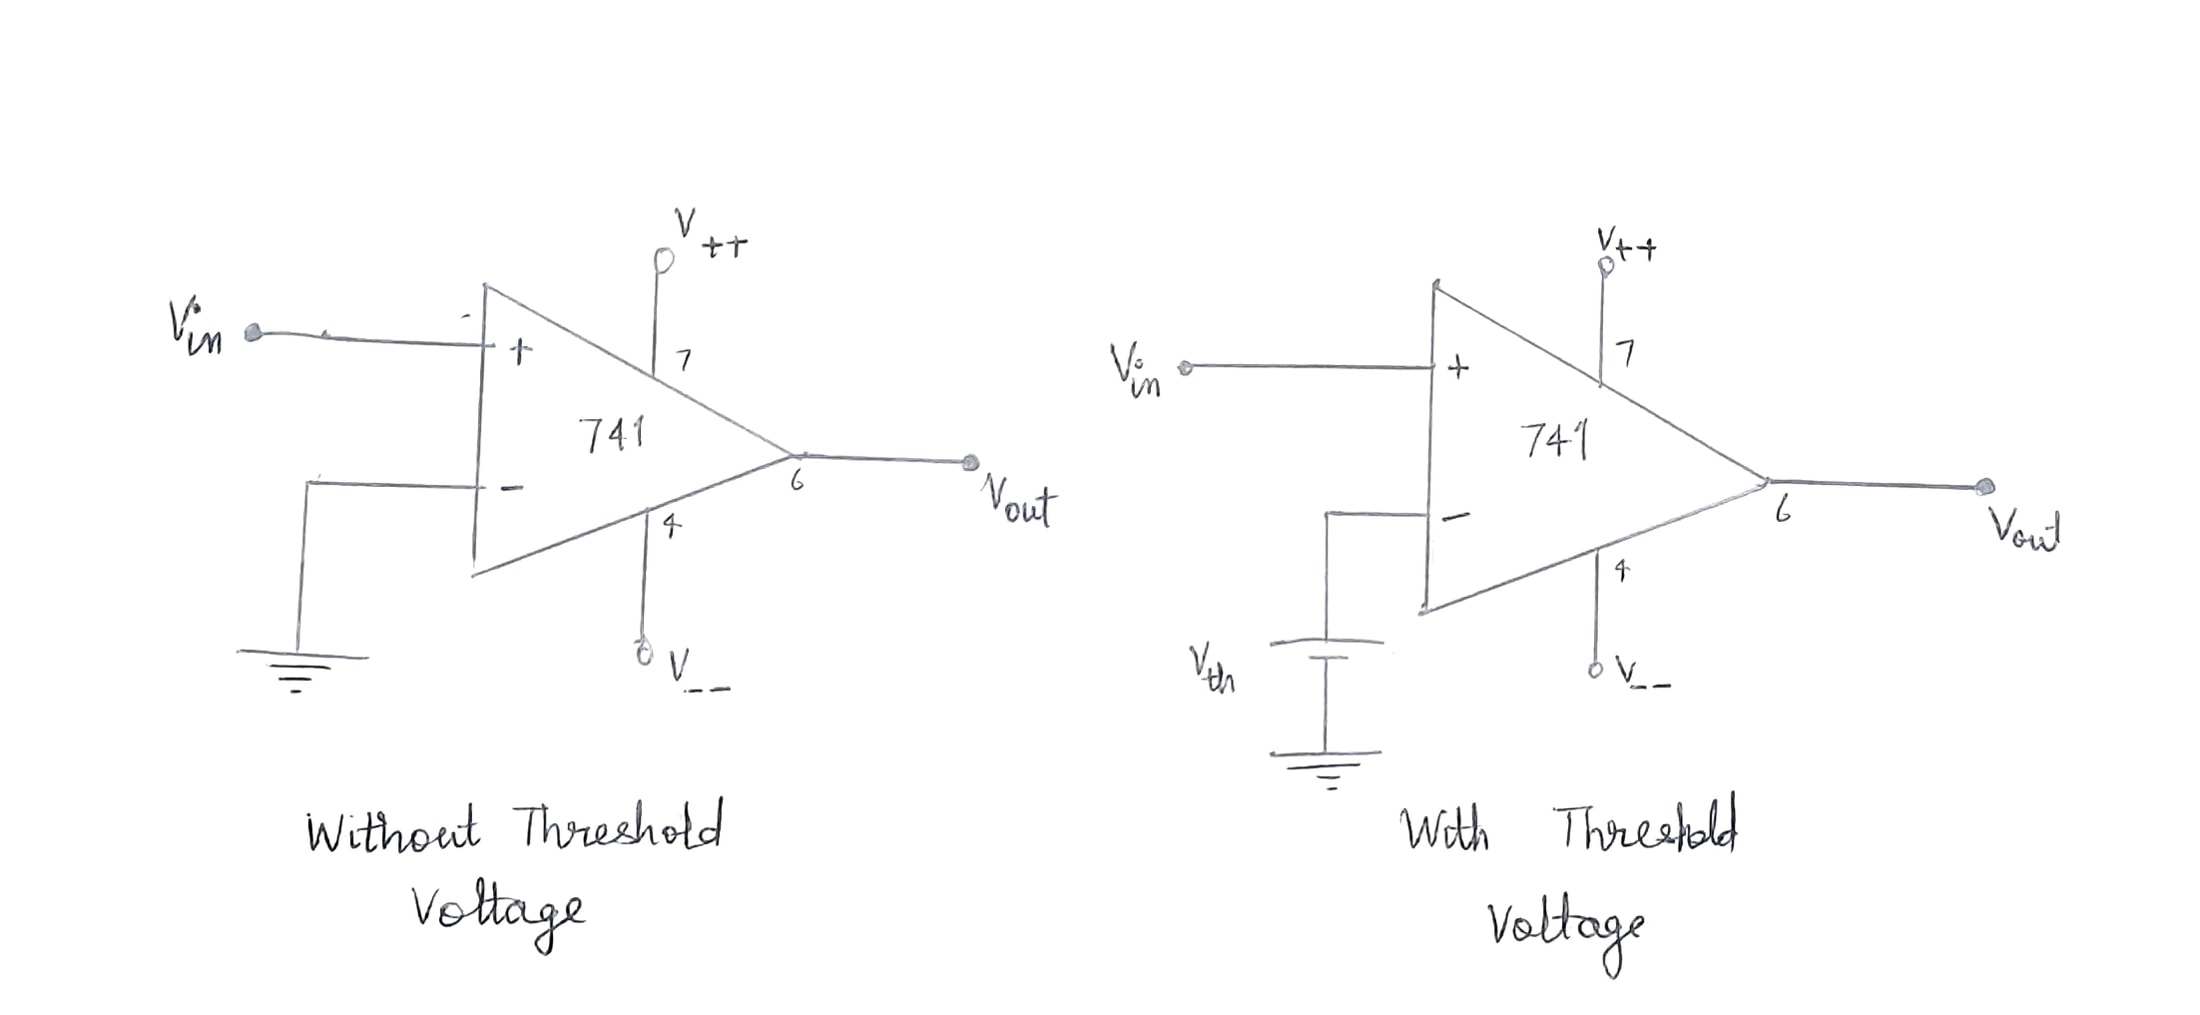 V++
Vin
+
7
741
-
6
Vout
4
V--
Without Threshold
Voltage
V++
Vin
+
7
741
-
6
Vout
4
Vth
V--
With Threshold
Voltage